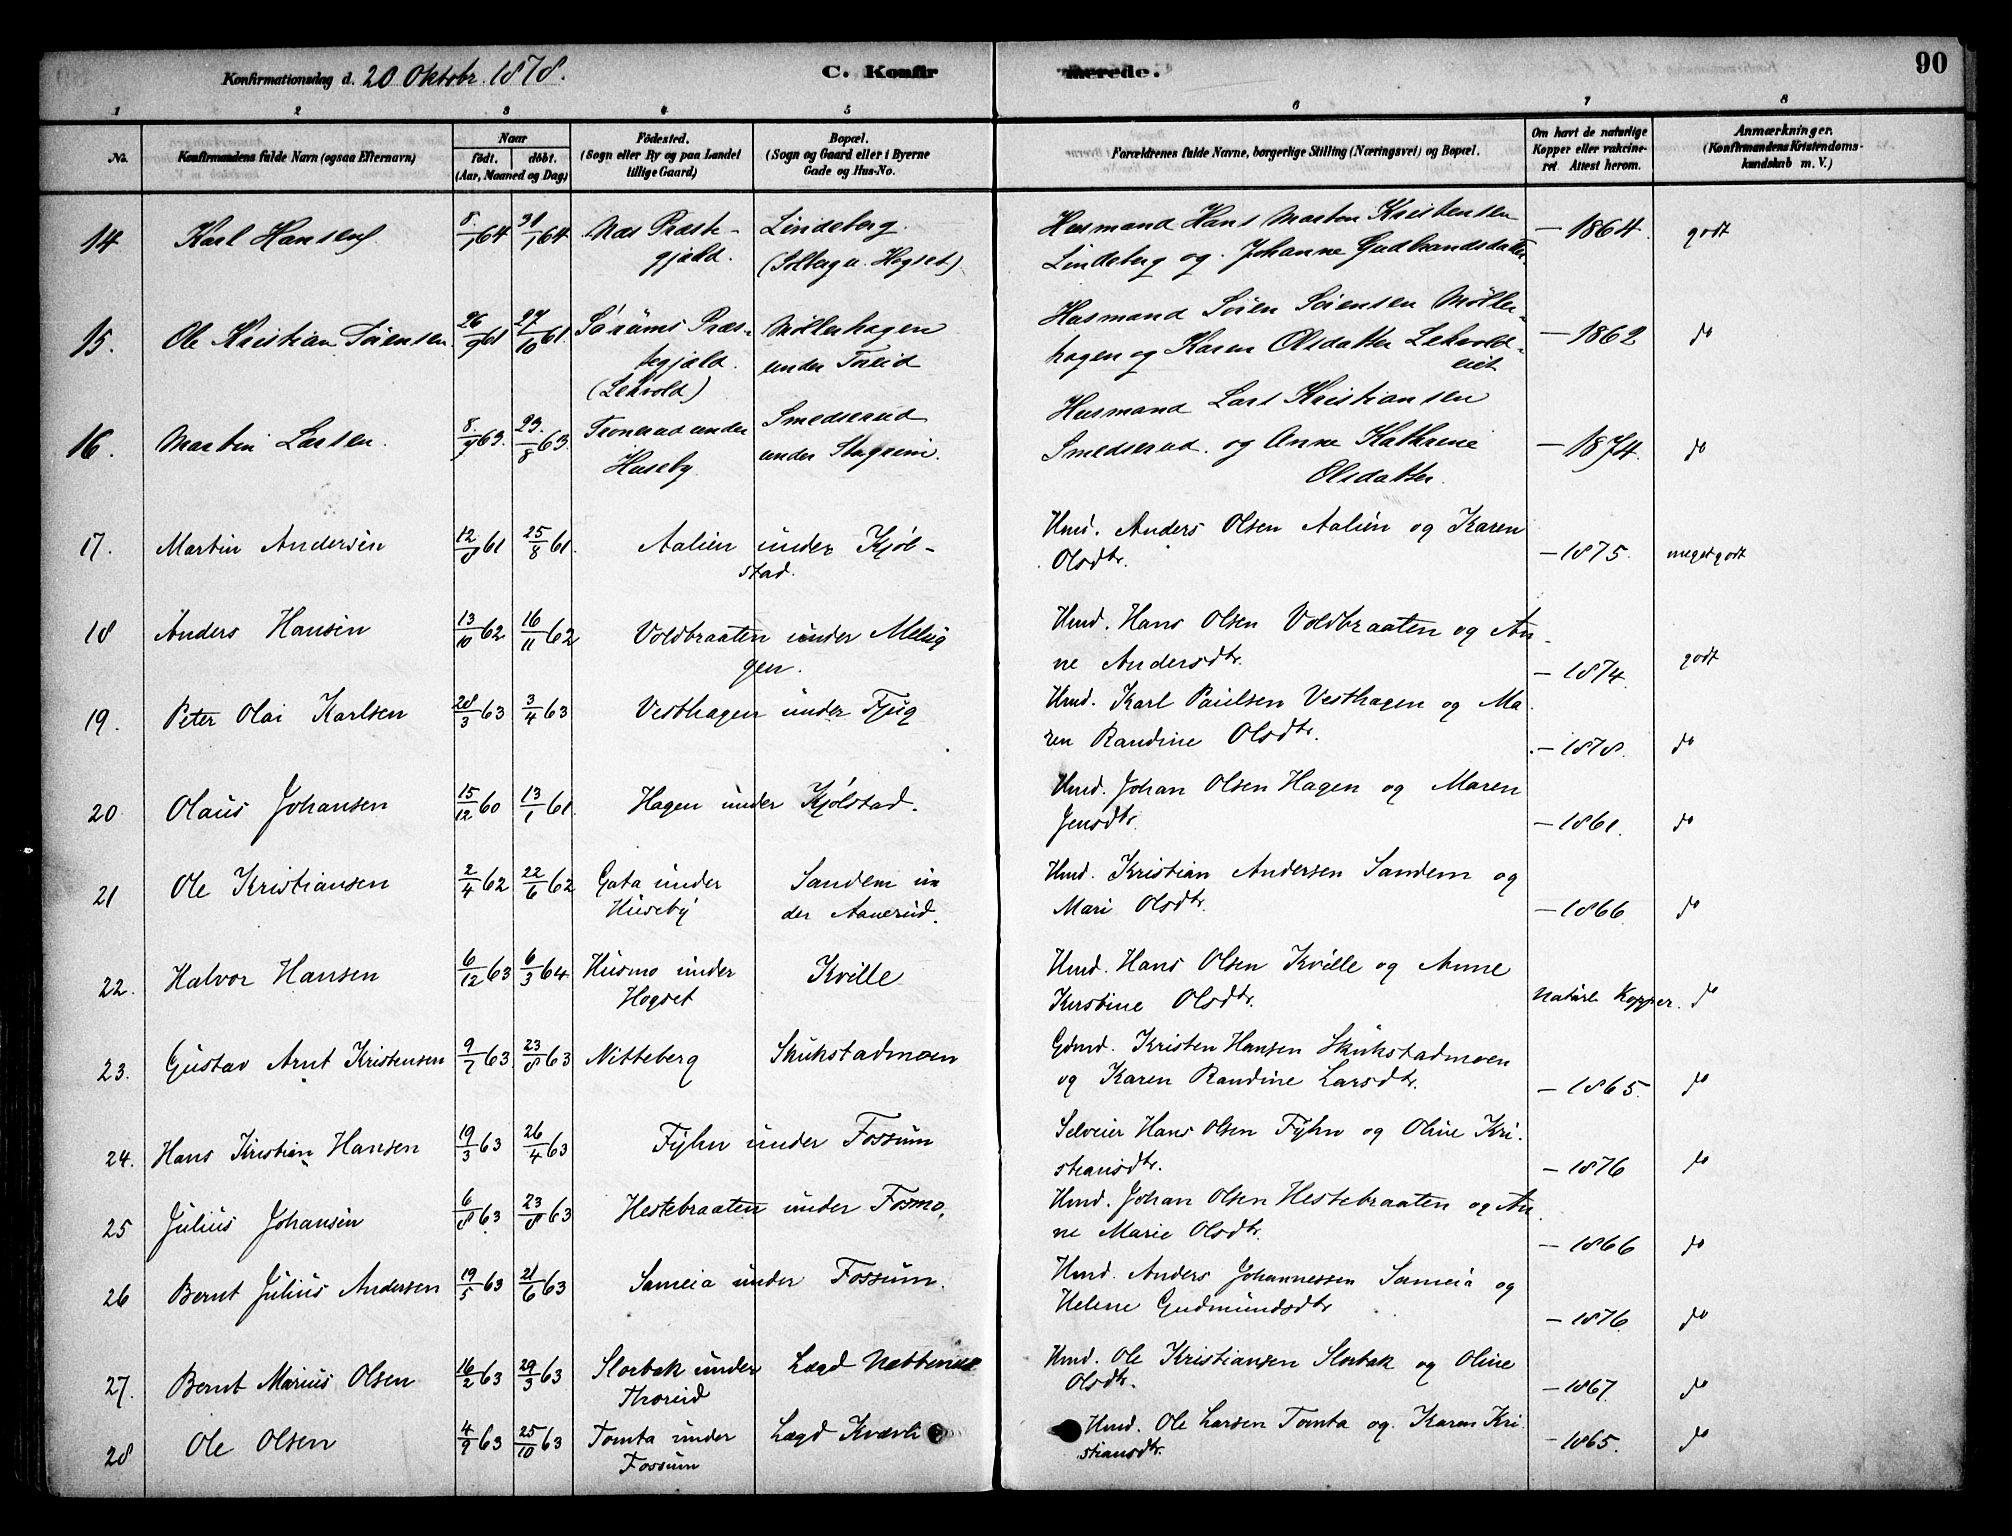 90
Konfirmationsdag d. 20 Oktobr. 1878. C. Konfirmerede.
1 2 3 4 5 6 7 8
No. Konfirmandens fulde Navn (ogsaa Efternavn) Naar født. døbt. (Aar, Maaned og Dag) Fødested. (Sogn eller By og paa Landet tillige Gaard) Bopæl. (Sogn og Gaard eller i Byerne Gade og Hus-No. Forældrenes fulde Navne, borgerlige Stilling (Næringsvei) og Bopæl. Om havt de naturlige Kopper eller vakcineret. Attest herom. Anmærkninger. (Konfirmandens Kristendomskundskab m. V.)
14 Karl Hansen 8/1 64 31/1 64 Næs Præste- Lindeberg. Husmand Hans Martin Kristensen — 1864. godt
gjæld. (Solberg u. Hogset) Lindeberg og Johanne Gudbrandsdatter.
15. Ole Kristian Sörensen 26/9 61 27/10 61 Sörums Præs- Möllerhagen Husmand Sören Sörensen Möller- — 1862 do
tegjæld. under Toreid hagen og Karen Olsdatter Lekvold-
(Lekvold) eiet
16. Martin Larsen. 8/7 63. 23/8 63. Tronerud under Smedserud Husmand Lars Kristiansen
Huseby. under Slugrini. Smedserud og Anne Kathrine — 1874. do
Olsdatter.
17. Martin Andersen 12/8 61 25/8 61. Aalien under Kjöl- Hmd. Anders Olsen Aalien og Karen
stad. Olsdtr. — 1875. meget godt
18 Anders Hansen 13/10 62 16/11 62 Voldbraaten under Melnig Hmd. Hans Olsen Voldbraaten og An-
gen. ne Andersdtr. — 1874. godt
19. Peter Olai Karlsen 28/3 63 3/4 63 Vesthagen under Fjug Hmd. Karl Paulsen Vesthagen og Ma-
ren Randine Olsdtr. — 1878. do
20 Olaus Johansen 15/12 60 13/1 61. Hagen under Kjölstad. Hmd. Johan Olsen Hagen og Maren
Jensdtr. — 1861. do
21 Ole Kristiansen 2/4 62 22/6 62 Gata under Sandem un Hmd. Kristian Andersen Sandem og
Huseby der Aanerud. Mari Olsdtr. — 1866 do
22. Halvor Hansen 6/12 63 6/3 64 Husmo under Kville Hmd. Hans Olsen Kville og Anne
Hogset Kirstine Olsdtr. Naturl Kopper. do
23. Gustav Arnt Kristensen 9/7 63. 23/8 63 Nitteberg Skukstadmoen Gdmd. Kristen Hansen Skukstadmoen
og Karen Randine Larsdtr. — 1865. do
24. Hans Kristian Hansen 19/3 63 26/4 63 Fyhn under Fossum Selveier Hans Olsen Fyhn og Oline Kri-
stiansdtr. — 1876 do
25 Julius Johansen 6/8 63. 23/8 63 Hestebraaten under Fosmo. Hmd. Johan Olsen Hestebraaten og An-
ne Marie Olsdtr. — 1866 do
26 Bernt Julius Andersen 19/5 63 21/6 63 Sameia under Fossum. Hmd. Anders Johannessen Sameia og
Helene Gudmundsdtr — 1876. do
27. Bernt Marius Olsen 16/2 63 29/3 63 Slorbak under Lægd Hmd. Ole Kristiansen Slorbak og Oline
Thorud Olsdtr. — 1867. do
28 Ole Olsen 4/9 63 25/10 63 Tomta under Lægd Hmd. Ole Larsen Tomta og Karen Kri-
Fossum stiansdtr. — 1865. do